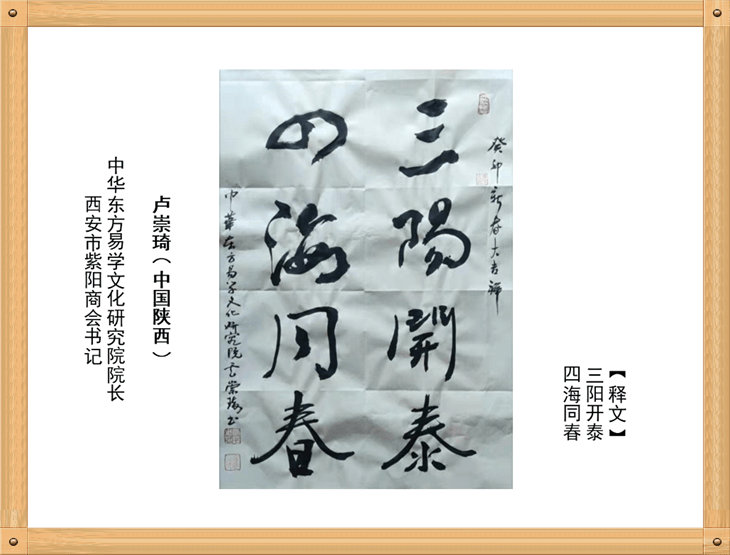 癸卯新春大吉祥
三陽開泰
四海同春
中華东方易学文化研究院卢崇琦书
【释文】
三阳开泰
四海同春
卢崇琦（中国陕西）
中华东方易学文化研究院院长
西安市紫阳商会书记